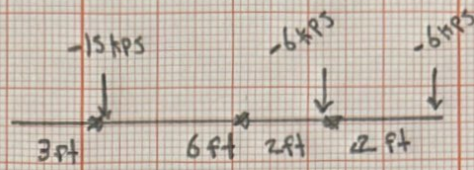 -15 kps -6 kps -6 kps
3 ft 6 ft 2 ft 2 ft